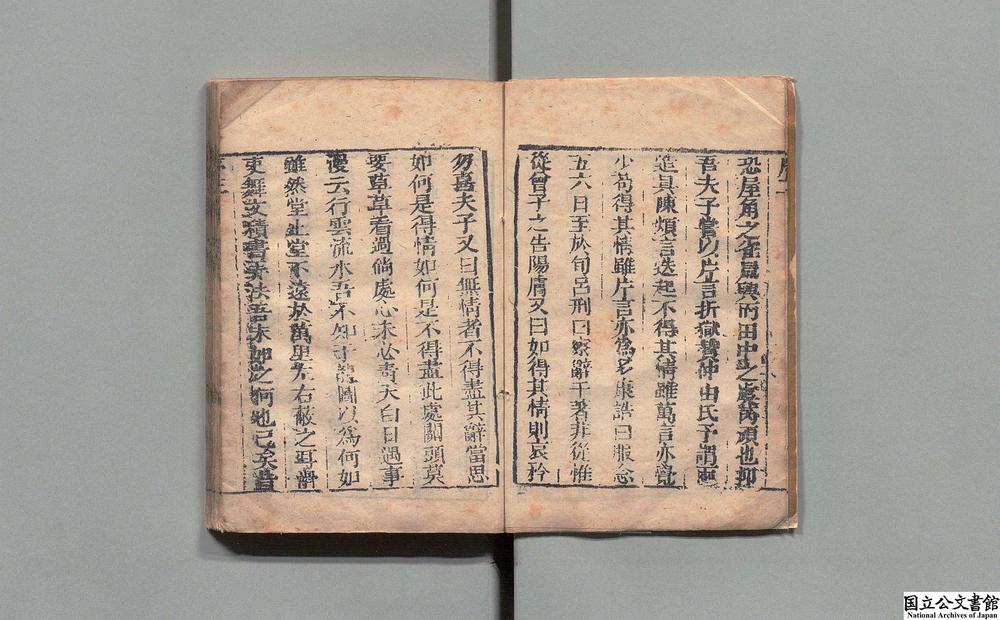 恐屋角之雀屢興而田中之虞芮頑也抑
吾夫子嘗以片言折獄贊仲由氏予謂兩
造具陳煩言迭起不得其情雖萬言亦覺
少苟得其情雖片言亦爲多康誥曰服念
五六日至於旬呂刑曰察辭于差非從惟
從曾子之告陽膚又曰如得其情則哀矜
勿喜夫子又曰無情者不得盡其辭當思
如何是得情如何是不得盡此處關頭莫
要草草看過倘處心未必靑天白日遇事
漫云行雲流水吾不知于龍圖以爲何如
雖然堂上堂下遠於萬里左右蔽之耳
吏舞文積書弄法吾末如之何也已矣
国立公文書館
National Archives of Japan